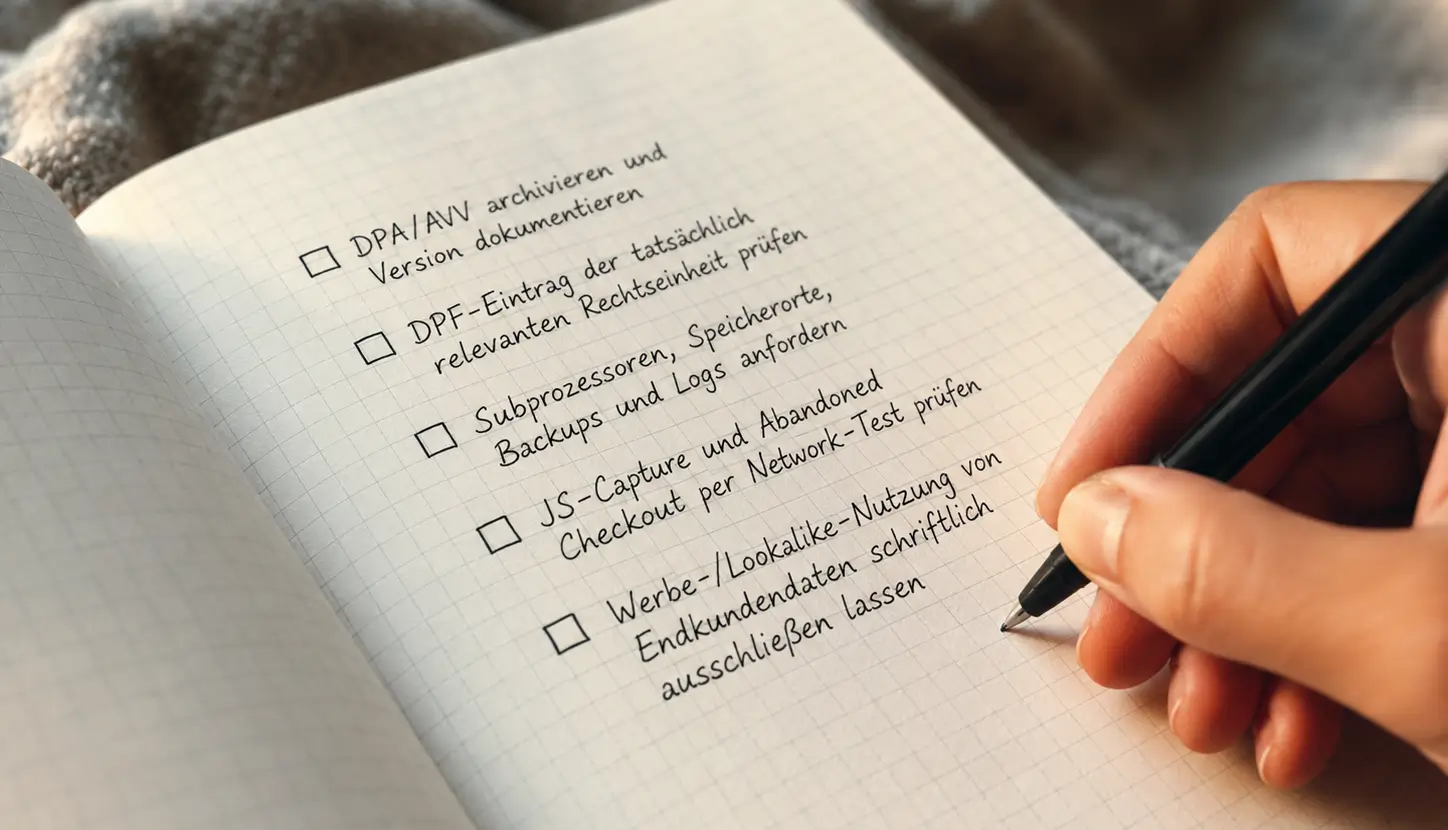 DPA/AVV archivieren und
Version dokumentieren
DPF-Eintrag der tatsächlich
relevanten Rechtseinheit prüfen
Subprozessoren, Speicherorte,
Backups und Logs anfordern
JS-Capture und Abandoned
Checkout per Network-Test prüfen
Werbe-/Lookalike-Nutzung von
Endkundendaten schriftlich
ausschließen lassen